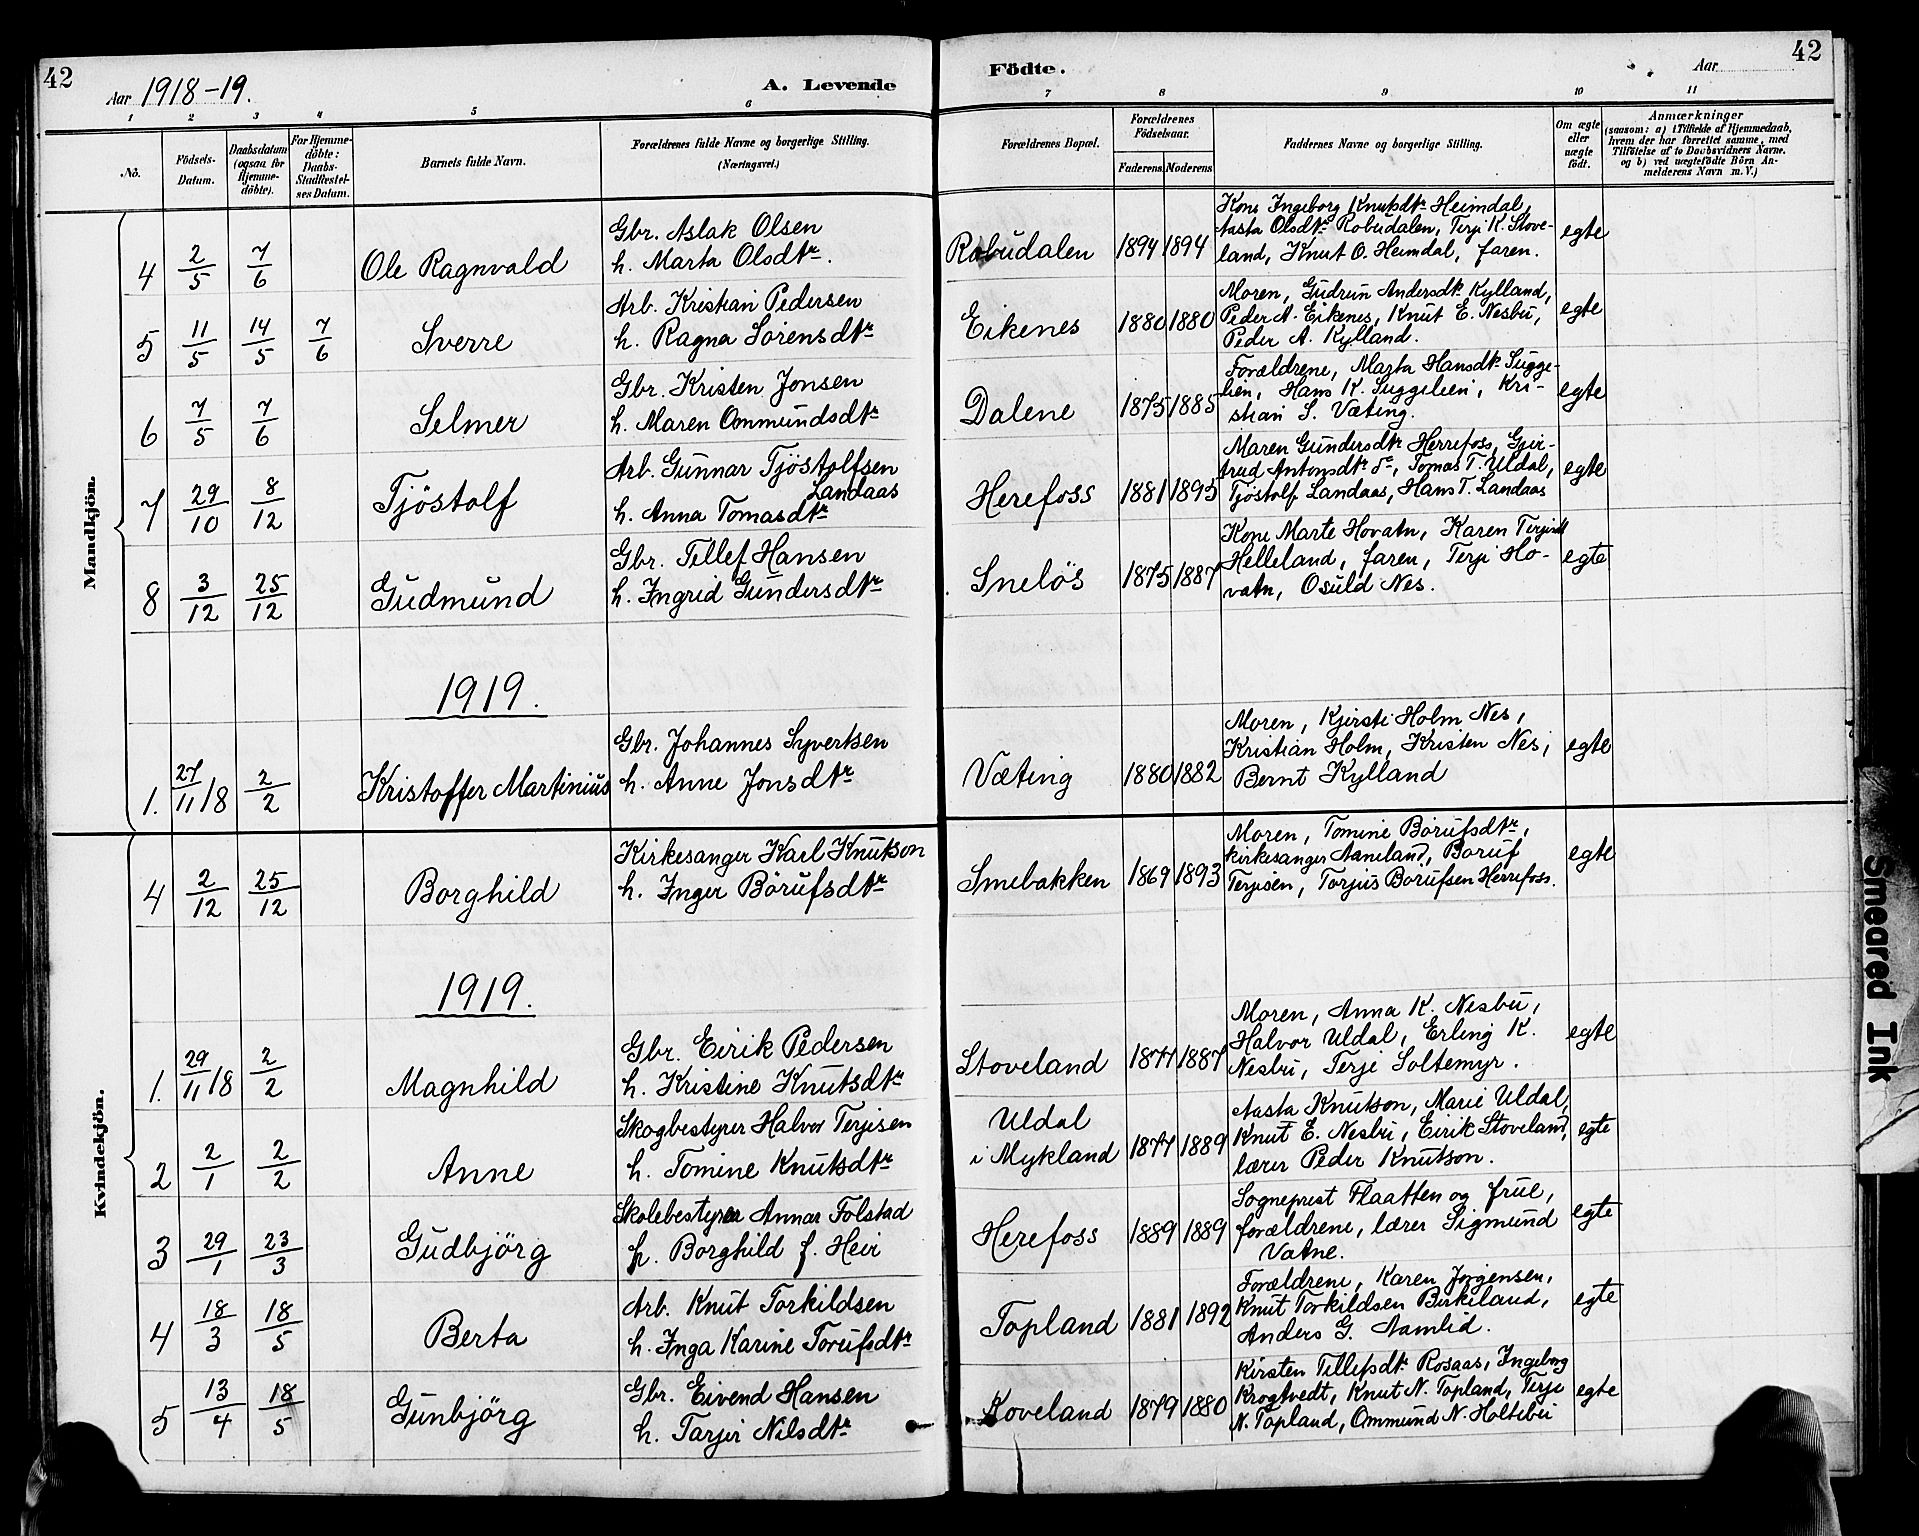 42
Aar 1918-19.
A. Levende
Födte.
Aar
42
1 2 3 4 5 6 7 8 9 10 11
No.
Födsels-Datum.
Daabsdatum (ogsaa for Hjemme-döbte).
For Hjemme-döbte: Daabs-Stadfæstel-ses Datum.
Barnets fulde Navn.
Forældrenes fulde Navne og borgerlige Stilling. (Næringsvei.)
Forældrenes Bopæl.
Forældrenes Födselsaar.
Faderens Moderens
Faddernes Navne og borgerlige Stilling.
Om ægte eller uægte födt.
Anmærkninger
(saasom: a) i Tilfælde af Hjemmedaab, hvem der har forrettet samme, med Tilföielse af to Daabsvidners Navne. og b) ved uægtefödte Börn An-melderens Navn m. V.)
Mandkjön.
4 2/5 7/6 Ole Ragnvald
Gbr. Aslak Olsen
h. Marta Olsdtr.
Robudalen 1894 1894
Kone Ingeborg Knutsdtr Heimdal,
Aasta Olsdtr Robudalen, Terje K. Stove-
land, Knut O. Heimdal, faren.
egte
5 11/5 14/5 7/6 Sverre
Arb. Kristian Pedersen
h. Ragna Sörensdtr
Eikenes 1880 1880
Moren, Gudrun Andersdtr Kylland,
Peder A. Eikenes, Knut E. Nesbu,
Peder A. Kylland.
egte
6 7/5 7/6 Selmer
Gbr. Kristen Jonsen
h. Maren Ommundsdtr
Dalene 1875 1885
Forældrene, Marta Hansdtr Sugge-
lien, Hans K. Suggelien, Kri-
stian S. Væting.
egte
7 29/10 8/12 Tjöstolf
Arb. Gunnar Tjöstolfsen
Landaas
h. Anna Tomasdtr
Herefoss 1881 1895
Maren Gundersdtr Herrefoss, Gjer-
trud Antonsdtr do, Tomas T. Uldal,
Tjöstolf Landaas, Hans T. Landaas
egte
8 3/12 25/12 Gudmund
Gbr. Tellef Hansen
h. Ingrid Gundersdtr
Snelös 1875 1887
Kone Marte Hovatn, Karen Terjesdt
Helleland, faren, Terje Ho-
vatn, Osuld Nes.
egte
1919.
1. 27/11 18 2/2 Kristoffer Martinius
Gbr. Johannes Syvertsen
h. Anne Jonsdtr
Væting 1880 1882
Moren, Kjersti Holm Nes,
Kristian Holm, Kristen Nes,
Bernt Kylland
egte
Kvindekjön.
4 2/12 25/12 Borghild
Kirkesanger Karl Knutson
h. Inger Börufsdtr
Smebakken 1869 1893
Moren, Tomine Börufsdtr,
kirkesanger Aaneland, Boruf
Terjesen, Torjus Börufsen Herrefoss.
egte
1919.
1. 29/11 18 2/2 Magnhild
Gbr. Eirik Pedersen
h. Kristine Knutsdtr
Stoveland 1877 1887
Moren, Anna K. Nesbu,
Halvor Uldal, Erling K.
Nesbu, Terje Soltemyr.
egte
2 2/1 2/2 Anne
Skogbestyrer Halvor Terjesen
h. Tomine Knutsdtr
Uldal
i Mykland 1877 1889
Aasta Knutson, Marie Uldal,
Knut E. Nesbu, Eirik Stoveland,
lærer Peder Knutson.
egte
3 29/1 23/3 Gudbjörg
Skolebestyrer Annar Tolstad
h. Borghild f. Heir
Herefoss 1889 1889
Sogneprest Flaatten og frue,
forældrene, lærer Sigmund
Vatne.
egte
4 18/3 18/5 Berta
Arb. Knut Torkildsen
h. Inga Karine Torufsdtr
Topland 1881 1892
Forældrene, Karen Jorgensen,
Knut Torkildsen Birkeland,
Anders G. Aamlid.
egte
5 13/4 18/5 Gunbjörg
Gbr. Eivend Hansen
h. Tarjer Nilsdtr
Koveland 1879 1880
Kirsten Tellefsdtr Rosaas, Ingeborg
Krogtvedt, Knut N. Topland, Terje
N. Topland, Ommund N. Holtebu
egte
Smeared Ink